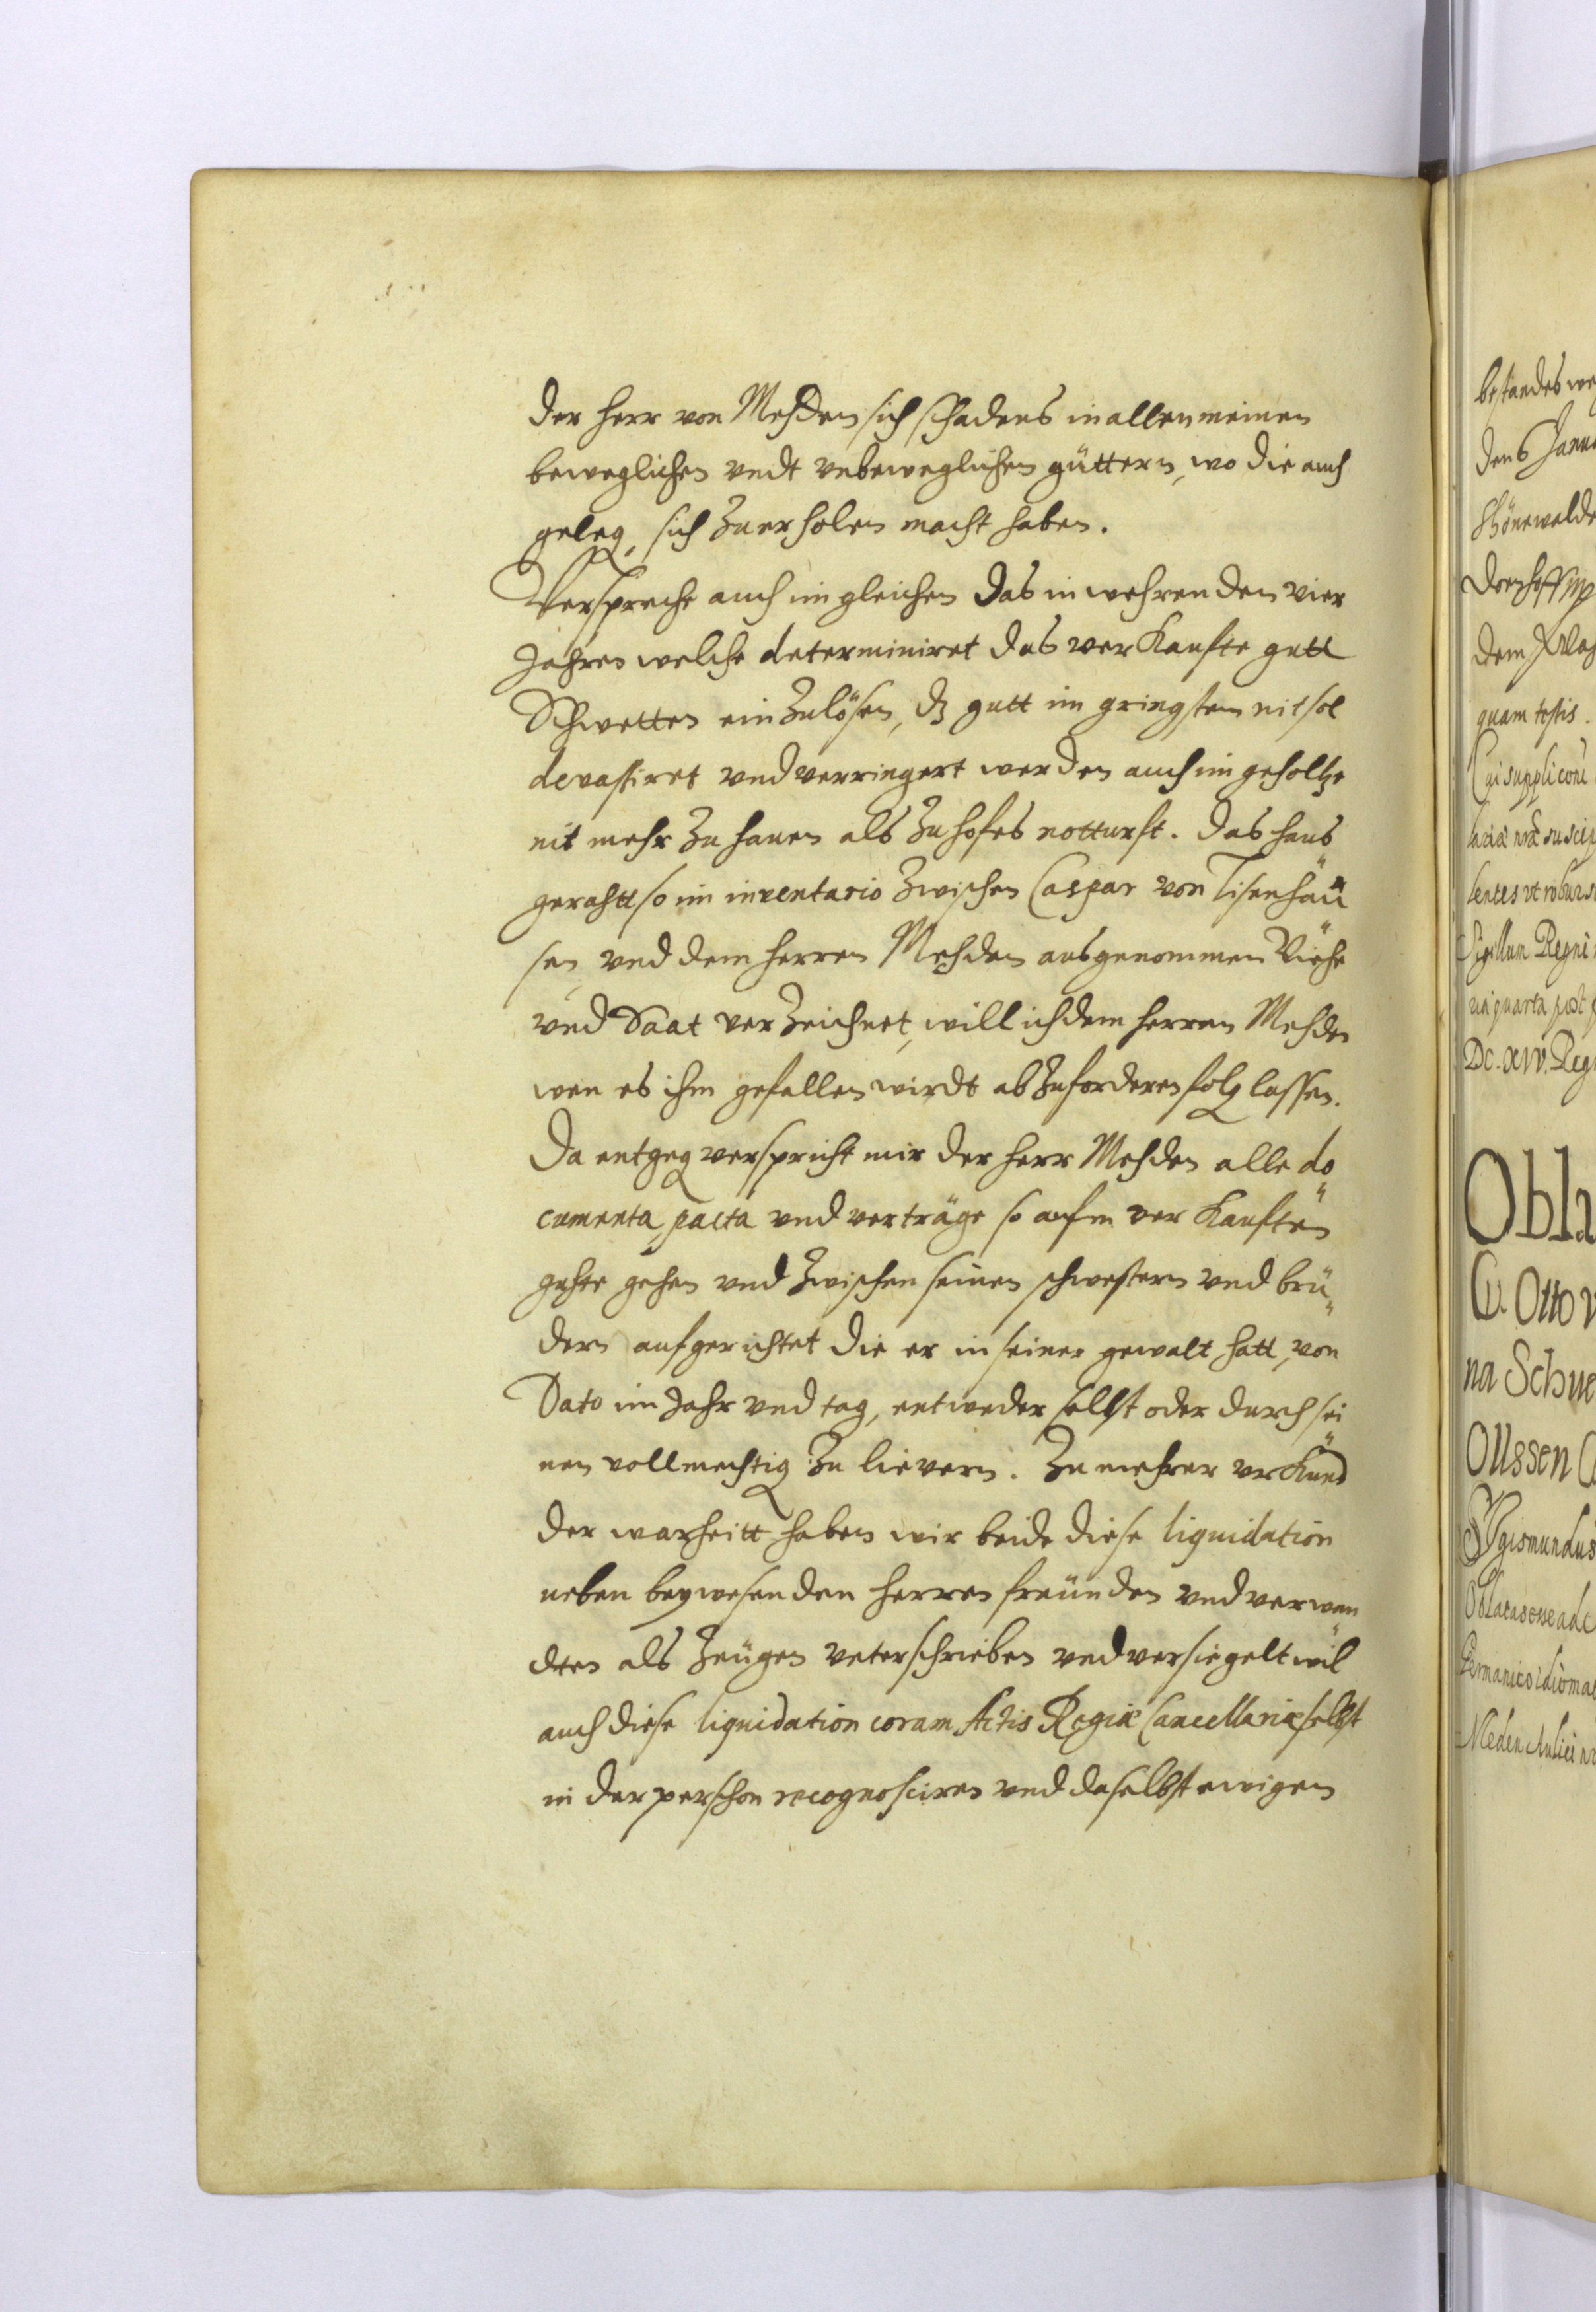 der herr von Mehden sich schadens in allen meinen
beweglichen vndt vnbeweglichen güttern, wo die auch
geleg, sich zuerholen macht haben.
Verspreche auch im gleichen das in wehrenden vier
Jahren welche determiniret das verkaufte gutt
Schwetten ein zulösen, dz gutt im gringsten nit sol
devastiret vnd verringert werden auch im geholtze
nit mehr zu hauen als zu hofes notturft. das haus
geraht so im inventario zwischen Caspar von Tisenhau
sen vnd dem herren Mehden ausgenommen Viehe
vnd Saat verzeichnet, will ich dem herren Mehden
wen es ihm gefallen wirdt abzuforderen folg lassen.
Da entgeg verspricht mir der herr Mehden alle do
cumenta, pacta vnd verträge so aufm verkauften
guhte gehen vnd zwischen seinen schwestern vnd brü
dern aufgerichtet die er in seiner gewalt hatt, von
Dato im Jahr vnd tag, entweder selbst oder durch sei
nen vollmechtig zu lievern. Zu mehrer vrkund
der warheitt haben wir beide diese liquidation
neben beywesenden herren freunden vnd verwan
dten als zeugen vnterschrieben vnd versiegelt will
auch diese liquidation coram Actis Regiæ Cancellariæ selbst
in der perschon recognosciren vnd daselbst ewigen
bestandes
den 6 Janu
Schönewalde
dem
quam testis.
Sigillum Regni
quarta post
Obla
Otto
na Schue
Ollssen
Sygismundus